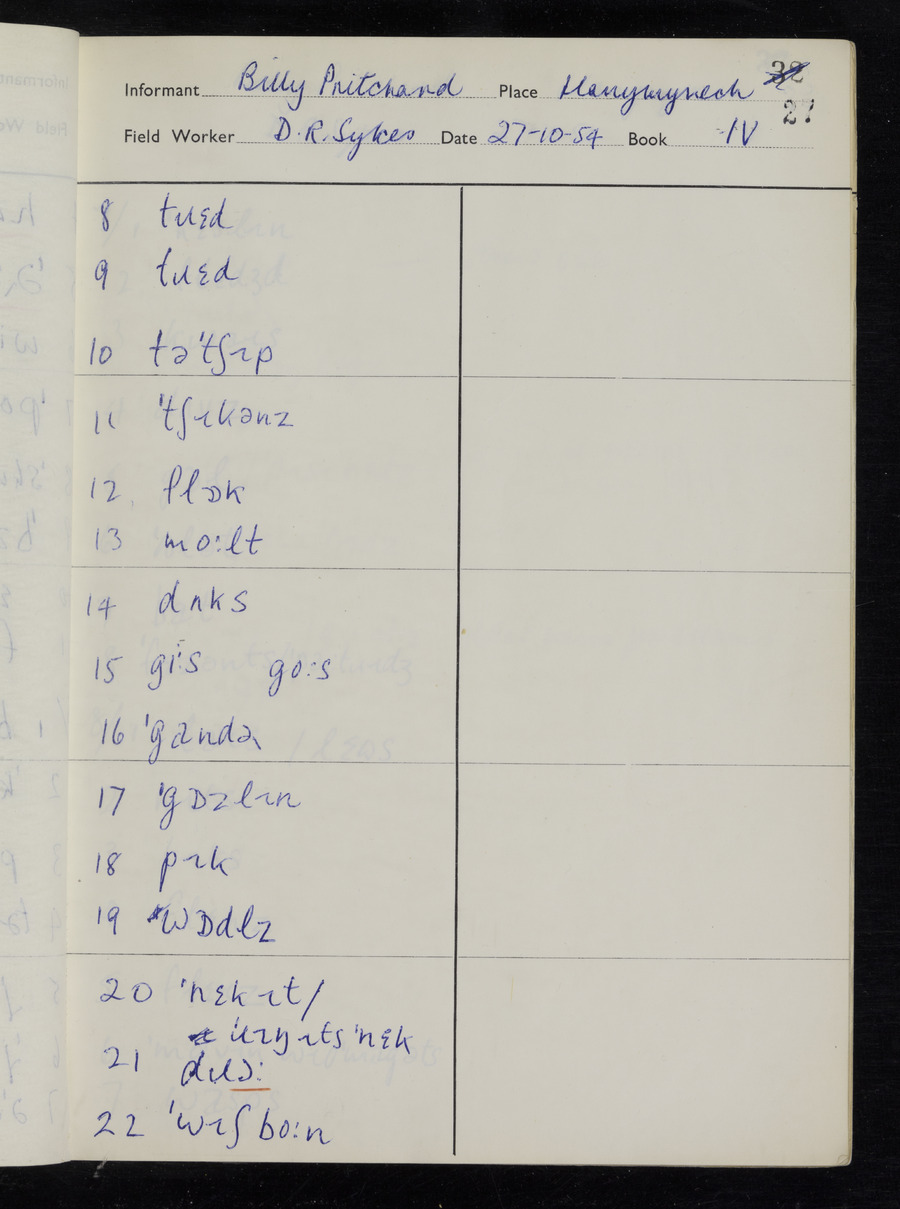 32
Informant Billy Pritchard Place Llanymynech
27
Field Worker D.R. Sykes Date 27-10-54 Book IV
8 tɹɛd
9 tɹɛd
10 tə'tʃɪp
11 'tʃɪkənz
12 flɔk
13 mo:lt
14 dʌks
15 gi:s go:s
16 'gandə
17 'gɒzlɪn
18 pɪk
19 wɒdlz
20 'nɛk ɪt/
'ɹɪŋ ɪts 'nɛk
21 dɹɔ:
22 'wɪʃbo:n